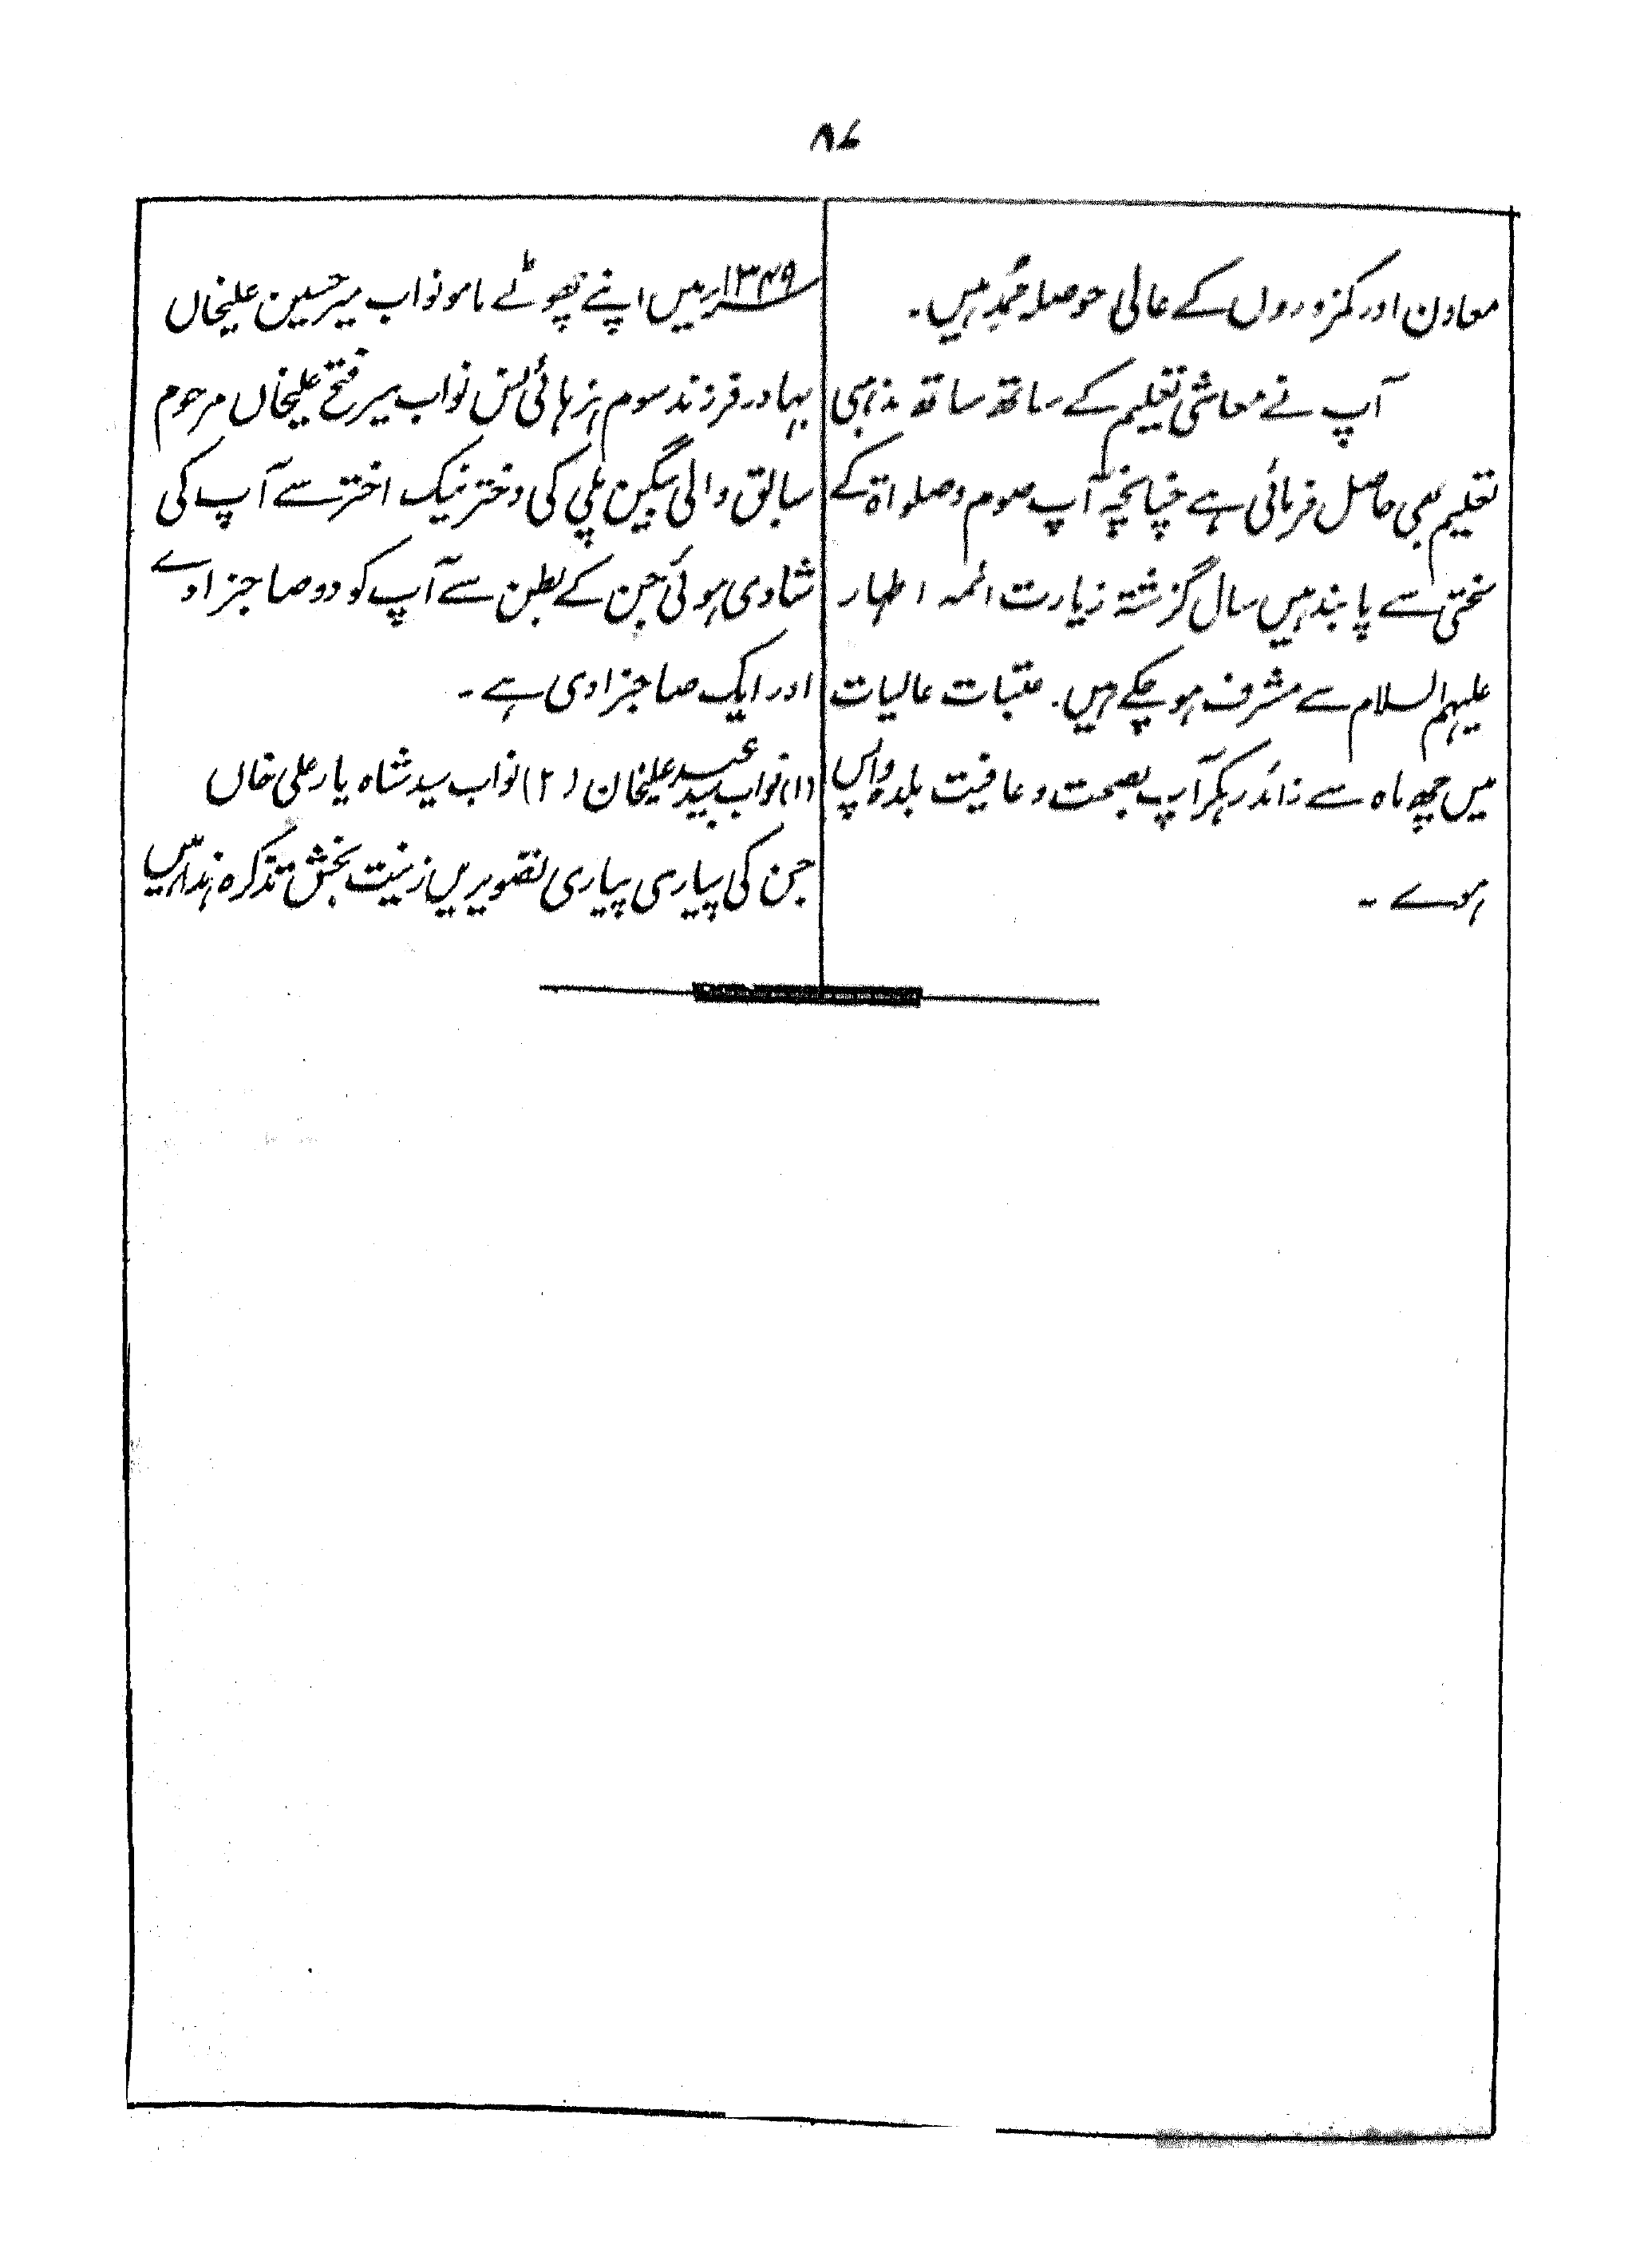 ۸۷
معاون اور کمزوروں کے عالی حوصلہ ممد ہیں۔
آپ نے معاشی تعلیم کے ساتھ ساتھ مذہبی
تعلیم بھی حاصل فرمائی ہے چنانچہ آپ صوم وصلواۃ کے
سختی سے پابند ہیں سال گزشتہ زیارت ائمہ اطہار
علیہم السلام سے مشرف ہو چکے ہیں۔ عتبات عالیات
میں چھ ماہ سے زائد رہکر آپ بصحت وعافیت بلدہ واپس
ہوے ۔
۱۳۴۹ھ میں اپنے چھوٹے مامو نواب میر حسین علیخاں
بہادر فرزند سوم ہز ہائی نس نواب میر فتح علیخاں مرحوم
سابق والی بیگن پلی کی دختر نیک اختر سے آپ کی
شادی ہوئی جن کے بطن سے آپ کو دو صاحبزادے
اور ایک صاحبزادی ہے ۔
(۱) نواب سید علیخان (۲) نواب سید شاہ یار علی خاں
جن کی پیاری پیاری تصویریں زینت بخش تذکرہ ہذا ہیں